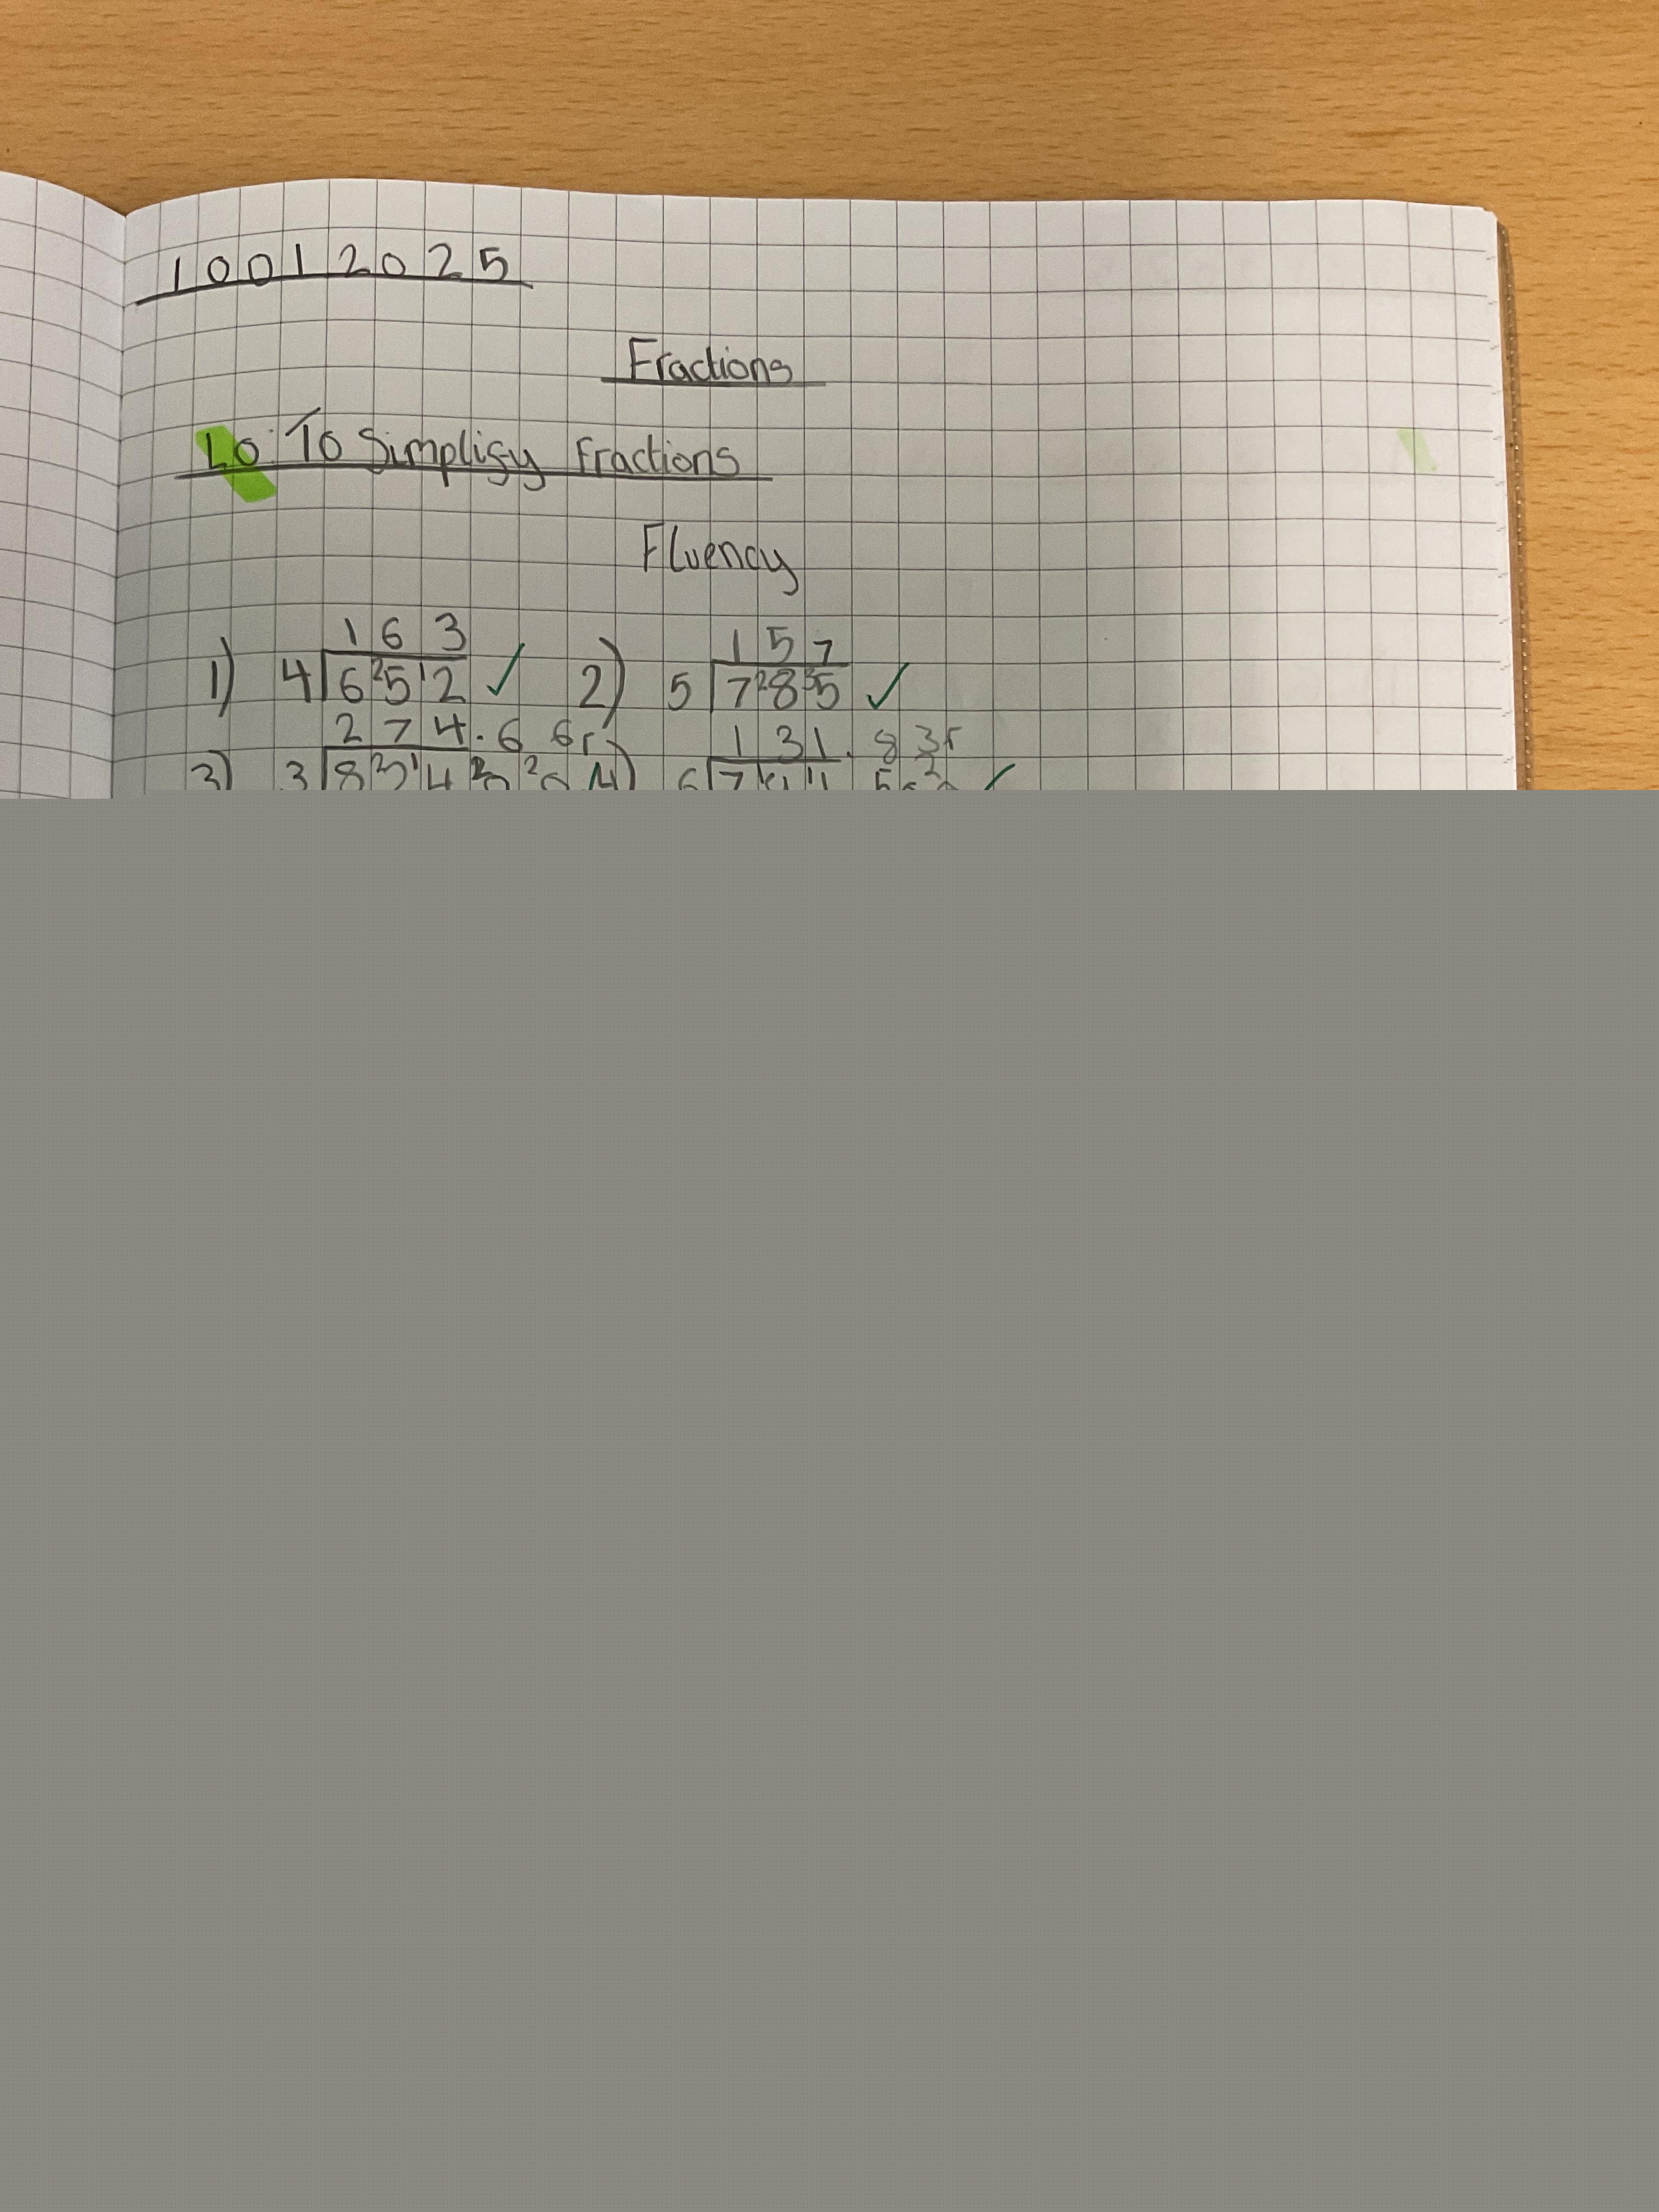 10012025
Fractions
LO: To Simplify Fractions
Fluency
1 6 3 1 5 7
1) 4 6 ²5 ¹2 ✓ 2) 5 7 ²8 ³5 ✓
2 7 4 . 6 6r 1 3 1 . 8 3r
3) 3 8 6 7